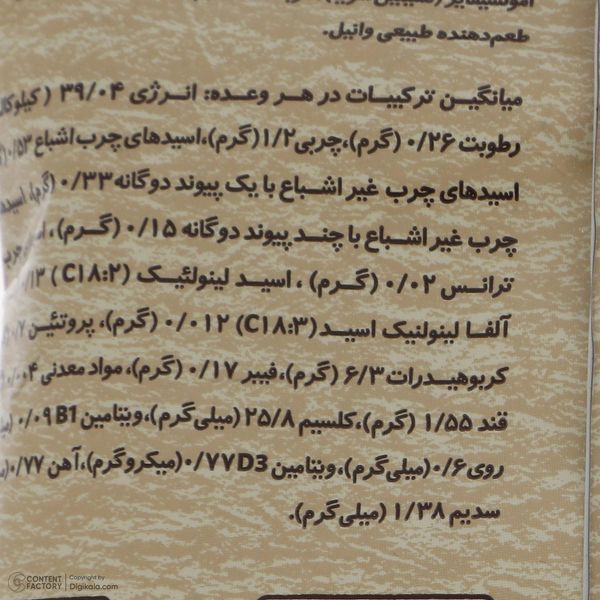 طعم‌دهنده طبیعی وانیل.
میانگین ترکیبات در هر وعده: انرژی ۳۹/۰۴ (کیلوکال
رطوبت ۰/۲۶ (گرم)،چربی۱/۲(گرم)،اسیدهای چرب اشباع ۰/۵۳
اسیدهای چرب غیر اشباع با یک پیوند دوگانه۰/۳۳ (گرم)، اسیدها
چرب غیر اشباع با چند پیوند دوگانه ۰/۱۵ (گرم)،
ترانس ۰/۰۲ (گرم) ، اسید لینولئیک (C۱۸:۲)
آلفا لینولنیک اسید(C۱۸:۳) ۰/۰۱۲ (گرم)، پروتئین
کربوهیدرات۶/۳ (گرم)،فیبر ۰/۱۷ (گرم)، مواد معدنی
قند ۱/۵۵ (گرم)،کلسیم ۲۵/۸ (میلی‌گرم)،ویتامین B1 ۰/۰۹
روی۰/۶(میلی‌گرم)، ویتامین D3 ۰/۷۷(میکروگرم)،آهن ۰/۷۷
سدیم ۱/۳۸ (میلی‌گرم).
CONTENT FACTORY
Copyright by Digikala.com